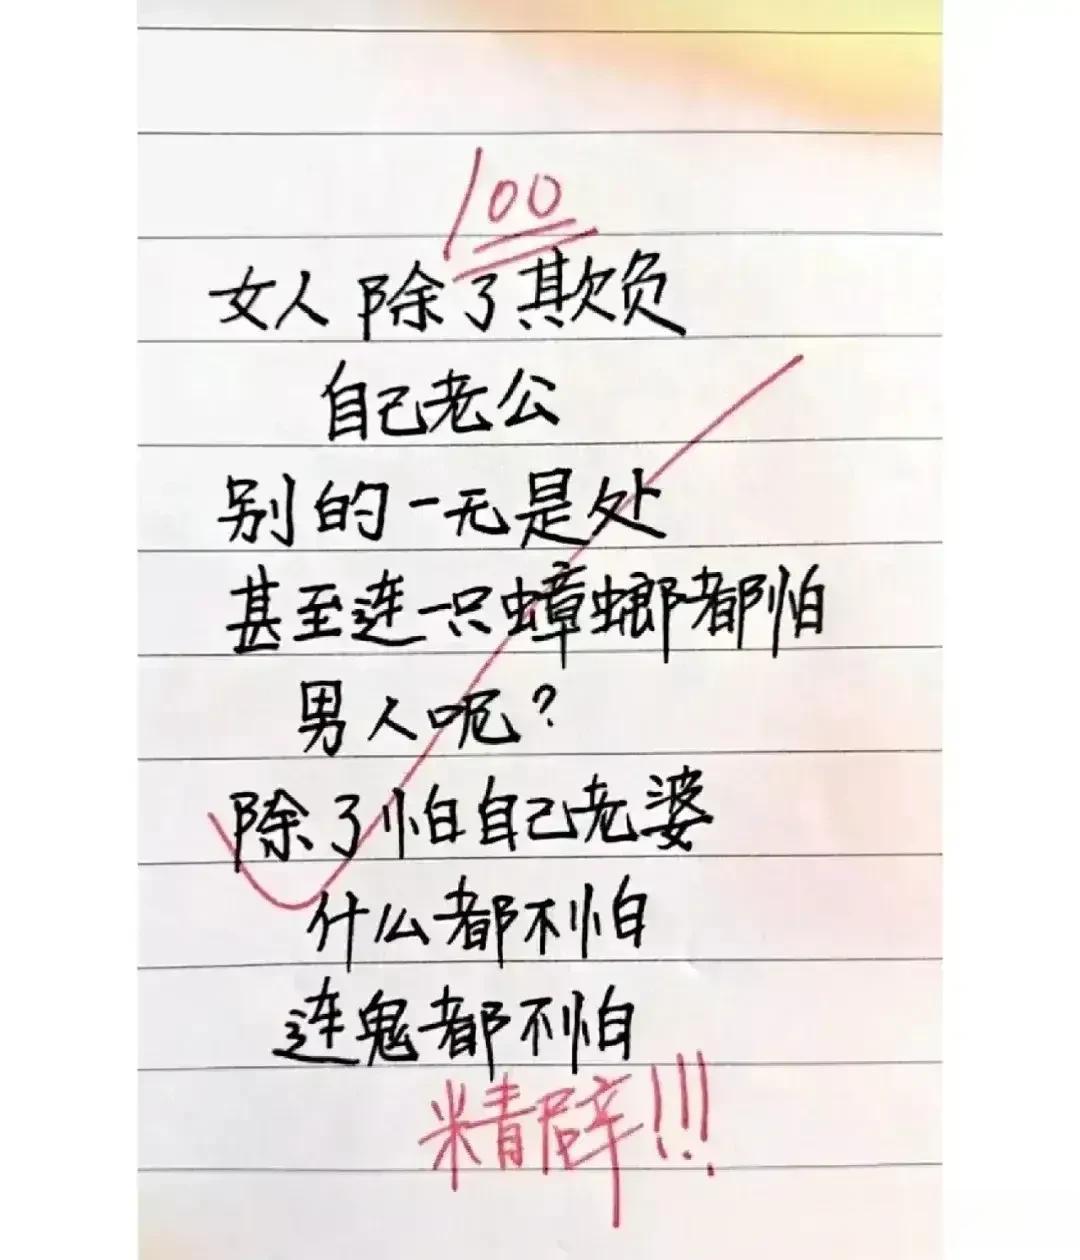 100
女人除了欺负
自己老公
别的一无是处
甚至连一只蟑螂都怕
男人呢?
除了怕自己老婆
什么都不怕
连鬼都不怕
精辟!!!